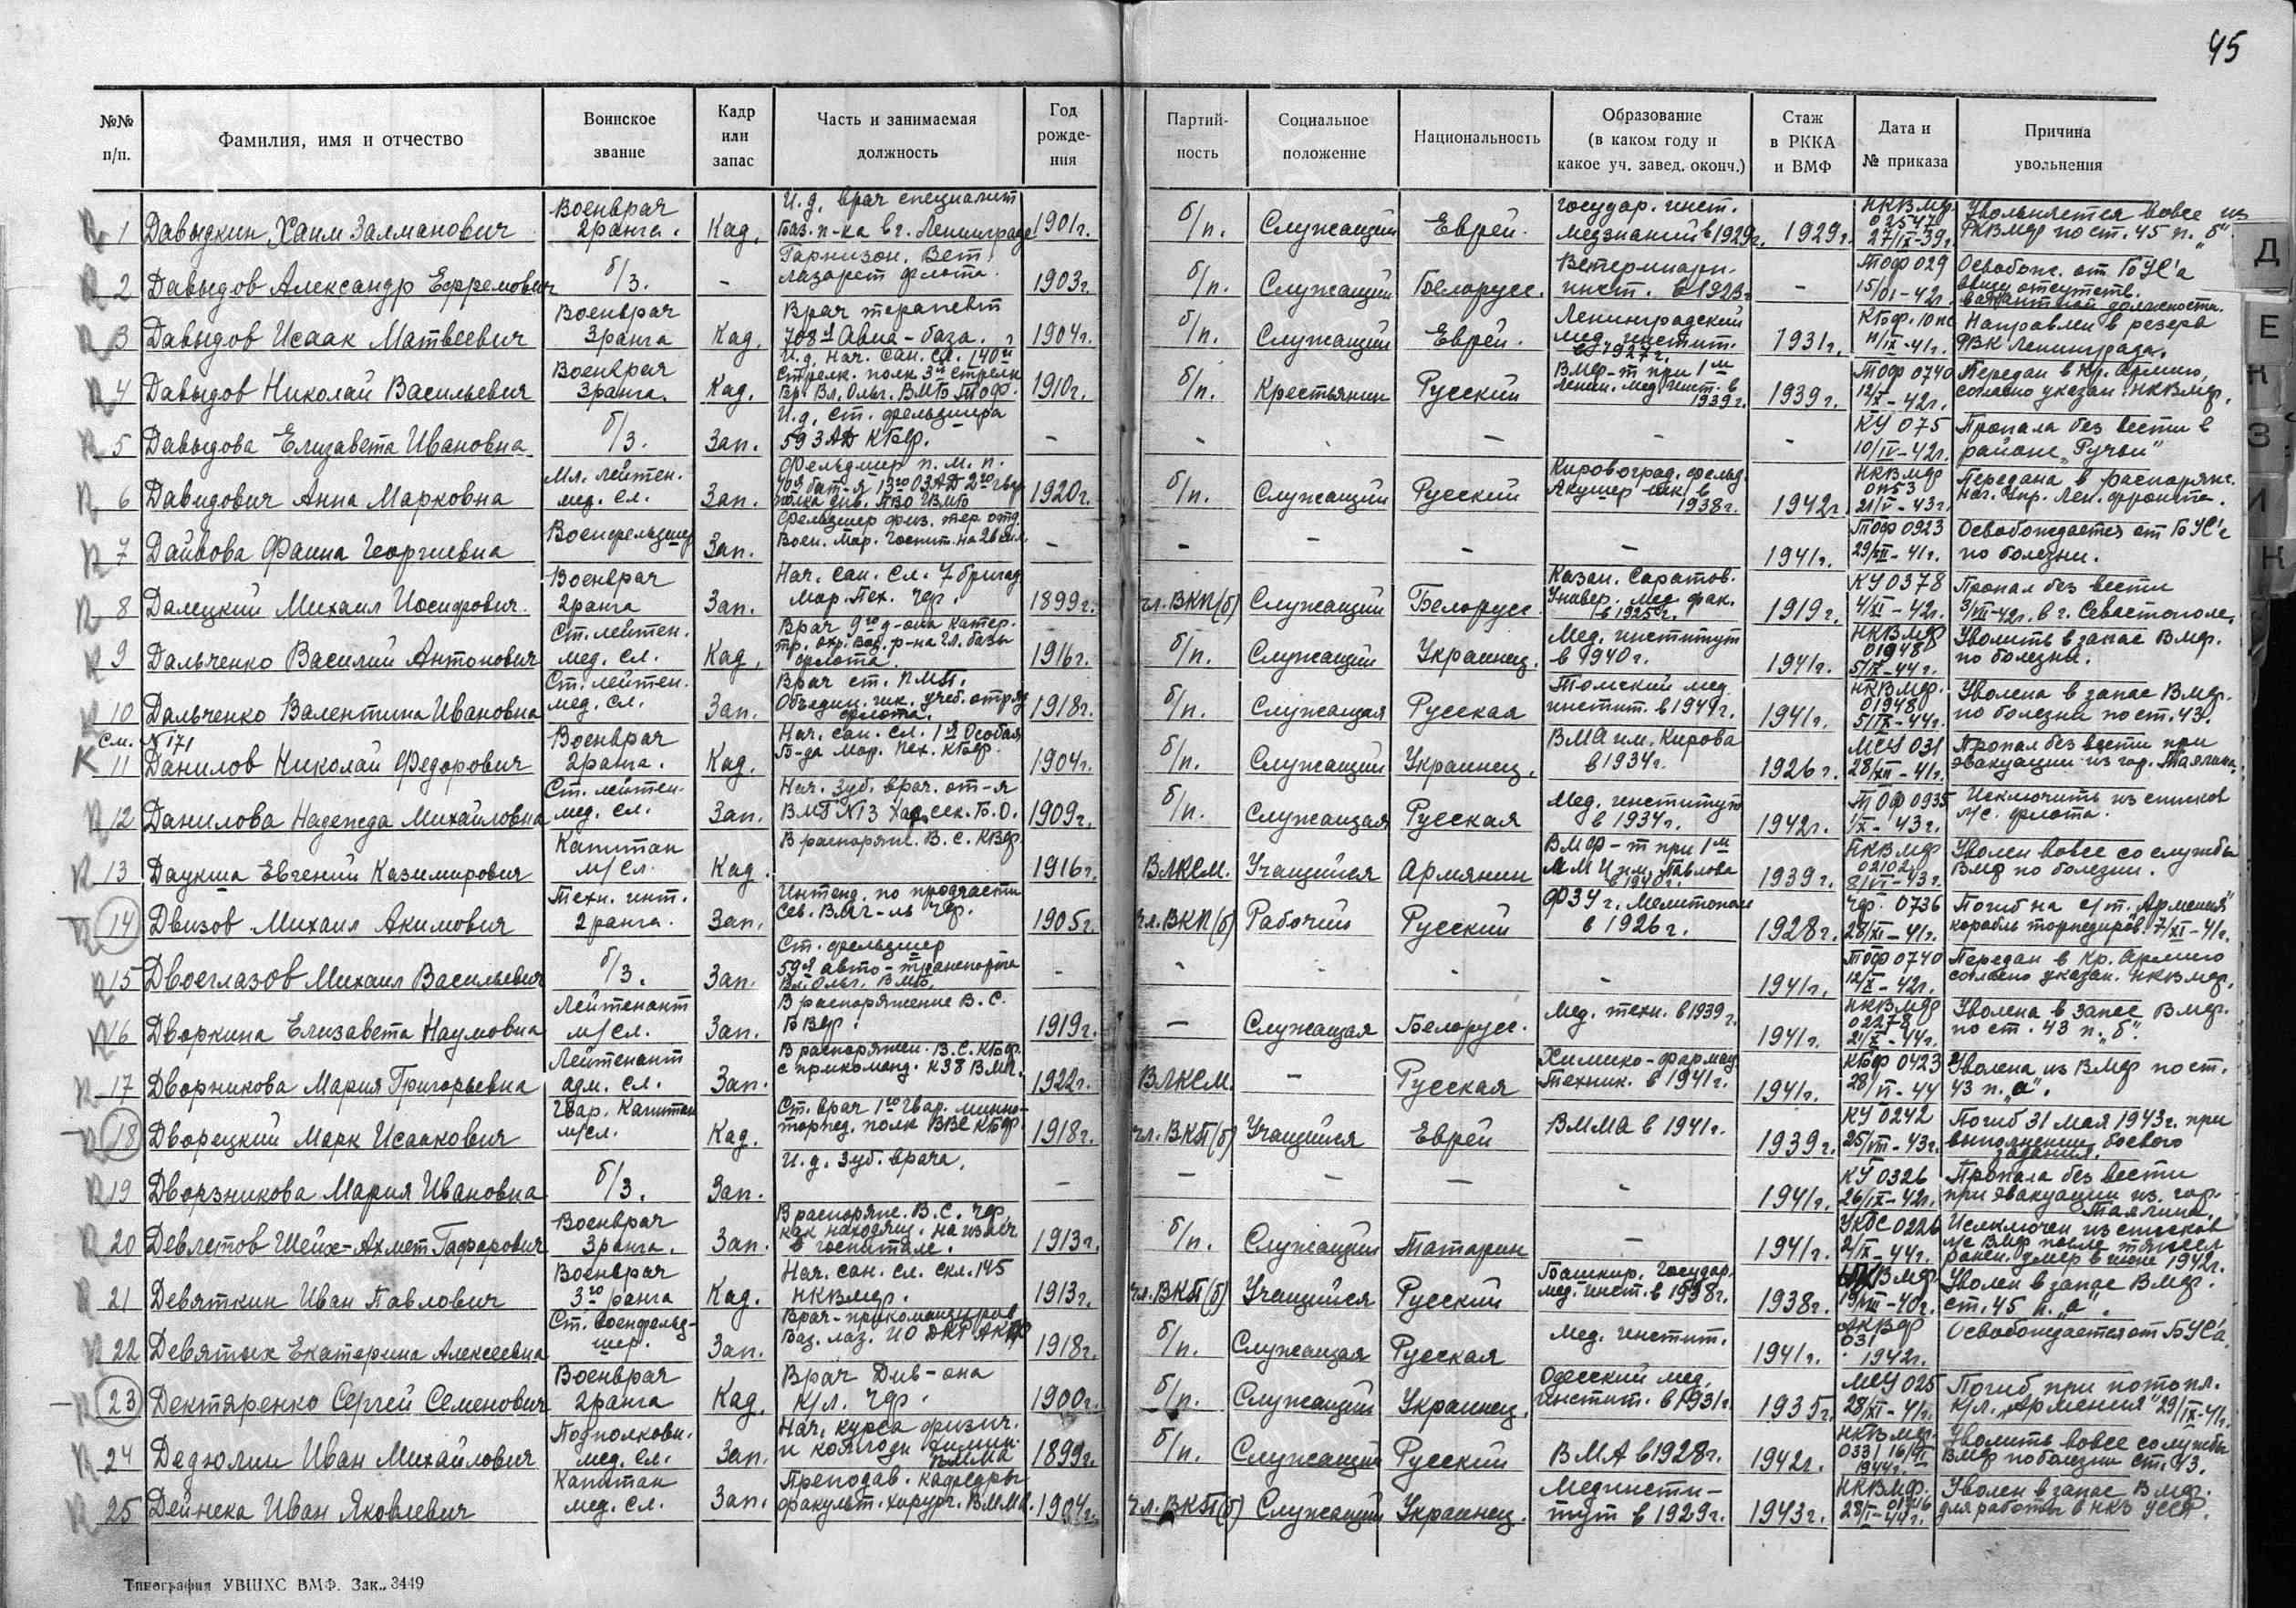 45
№№ п/п. Фамилия, имя и отчество Воинское звание Кадр или запас Часть и занимаемая должность Год рожде-ния Партий-ность Социальное положение Национальность Образование (в каком году и какое уч. завед. оконч.) Стаж в РККА и ВМФ Дата и № приказа Причина увольнения
1 Давыдкин Хаим Залманович Военврач 2 ранга. Кад. И.д. врач специалист Баз. п-ка в г. Ленинграде 1901г. б/п. Служащий Еврей. государ. инст. медзнаний в 1929г. 1929г. НКВМФ 02547 27/IX-39г. Увольняется вовсе из РКВМФ по ст. 45 п. „б".
2 Давыдов Александр Ефремович б/з. - Гарнизон. Вет. лазарет флота. 1903г. б/п. Служащий Белорусс. Ветеринарн. инст. в 1923г. - ТОФ 029 15/VI-42г. Освобожд. от БУС'а ввиду отсутств. вакантной должности.
3 Давыдов Исаак Матвеевич Военврач 3 ранга Кад. Врач терапевт 708й Авиа-база. 1904г. б/п. Служащий Еврей. Ленинградский мед. инстит. в 1927г. 1931г. КБФ. 10пс 11/IX-41г. Направлен в резерв ФВК Ленинграда.
4 Давыдов Николай Васильевич Военврач 3 ранга. Кад. И.д. Нач. сан. сл. 140й Стрелк. полк 3й стрелк. Бр. Вл. Ольг. ВМБ ТОФ. 1910г. б/п. Крестьянин Русский ВМФ-т при 1м Ленин. Мед. инст. в 1939г. 1939г. ТОФ 0740 12/X-42г. Передан в Кр. Армию, согласно указан. НКВМФ.
5 Давыдова Елизавета Ивановна б/з. Зап. И.д. ст. фельдшера 593 АД КБФ. - - - - - - КУ 075 10/IV-42г. Пропала без вести в районе „Ручьи"
6 Давидович Анна Марковна Мл. лейтен. мед. сл. Зап. Фельдшер п. м. п. 1920г. б/п. Служащий Русский Кировоград. фельд. Акушер. шк. в 1938г. 1942г. НКВМФ 0п53 21/V-43г. Передана в распоряж. нач. упр. Лен. фронта.
7 Дайвова Фаина Георгиевна Военфельдшер Зап. Фельдшер физ. тер. отд. Воен. Мор. Госпит. - - - - - 1941г. ТОФ 0923 29/XII-41г. Освобождается от БУС'а по болезни.
8 Далецкий Михаил Иосифович. Военврач 2 ранга Зап. Нач. сан. сл. 7 бригад Мор. Пех. Чф. 1899г. чл. ВКП(б) Служащий Белорусс. Казан. Саратов. Универ. Мед. фак. в 1925г. 1919г. КУ 0378 4/XI-42г. Пропал без вести 3/VII-42г. в г. Севастополе.
9 Дальченко Василий Антонович Ст. лейтен. мед. сл. Кад. Врач 9го д-она катер. тр. охр. вод. р-на Гл. базы флота. 1916г. б/п. Служащий Украинец. Мед. институт в 1940г. 1941г. НКВМФ 01948 5/IX-44г. Уволить в запас ВМФ. по болезни.
10 Дальченко Валентина Ивановна Ст. лейтен. мед. сл. Зап. Врач ст. ПМП. Объедин. шк. учеб. отряд флота. 1918г. б/п. Служащая Русская Томский мед. инстит. в 1941г. 1941г. НКВМФ. 01948 5/IX-44г. Уволена в запас ВМФ. по болезни по ст. 43.
См. №171
11 Данилов Николай Федорович Военврач 2 ранга. Кад. Нач. сан. сл. 1й Особая Б-да Мор. Пех. КБФ. 1904г. б/п. Служащий Украинец. ВМА им. Кирова в 1934г. 1926г. МСУ 031 28/XII-41г. Пропал без вести при эвакуации из гор. Таллина.
12 Данилова Надежда Михайловна Ст. лейтен. мед. сл. Зап. Нач. зуб. врач. от-я ВМГ №13 Хар. сек. Б.О. 1909г. б/п. Служащая Русская Мед. институт в 1934г. 1942г. ТОФ 0935 1/X-43г. Исключить из списков л/с. флота.
13 Даукша Евгений Казимирович Капитан м/сл. Кад. В распоряж. В.С. КВФ. 1916г. ВЛКСМ. Учащийся Армянин ВМФ-т при 1м ММИ им. Павлова в 1940г. 1939г. НКВМФ 02102 8/VI-43г. Уволен вовсе со службы ВМФ по болезни.
14 Двизов Михаил Акимович Техн. инт. 2 ранга. Зап. Интенд. по продчасти Сев. ВМГ-ль Чф. 1905г. чл. ВКП(б) Рабочий Русский ФЗУ г. Мелитополе в 1926г. 1928г. Чф. 0736 28/XI-41г. Погиб на с/т. „Армения" корабль торпедиров. 7/XI-41г.
15 Двоеглазов Михаил Васильевич б/з. Зап. Ст. фельдшер 59й авто-транспорта Вл. Ольг. ВМБ. - - - - - 1941г. ТОФ 0740 12/X-42г. Передан в Кр. Армию согласно указан. НКВМФ.
16 Дворкина Елизавета Наумовна Лейтенант м/сл. Зап. В распоряжение В.С. БВФ. 1919г. - Служащая Белорусс. Мед. техн. в 1939г. 1941г. НКВМФ 02278 21/X-44г. Уволена в запас ВМФ. по ст. 43 п. „б".
17 Дворникова Мария Григорьевна Лейтенант адм. сл. Зап. В распоряжен. В.С. КБФ. с прикоманд. к 38 ВМГ. 1922г. ВЛКСМ. - Русская Химико-фармац. Техник. в 1941г. 1941г. КБФ 0423 28/VI-44 Уволена из ВМФ по ст. 43 п. „а".
18 Дворецкий Марк Исаакович Гвар. Капитан м/сл. Кад. Ст. врач 1го Гвар. минно-торпед. полк ВВС КБФ 1918г. чл. ВКП(б) Учащийся Еврей ВММА в 1941г. 1939г. КУ 0242 25/VIII-43г. Погиб 31 мая 1943г. при выполнении боевого задания.
19 Дворзникова Мария Ивановна б/з. Зап. И.д. Зуб. врача. - - - - - 1941г. КУ 0326 26/IX-42г. Пропала без вести при эвакуации из гор. Таллина.
20 Девлетов Шейх-Ахмет Гафарович Военврач 3 ранга. Зап. В распоряж. В.С. Чф. как находящ. на излеч. в госпитале. 1913г. б/п. Служащий Татарин - 1941г. УКОС 0226 2/IX-44г. Исключен из списков л/с ВМФ после тяжел. ранен. умер в июне 1942г.
21 Девяткин Иван Павлович Военврач 3го ранга Кад. Нач. сан. сл. скл. 145 НКВМФ. 1913г. чл. ВКП(б) Учащийся Русский Башкир. Государ. мед. инст. в 1938г. 1938г. НКВМФ 19/VIII-40г. Уволен в запас ВМФ. ст. 45 п. „а".
22 Девятых Екатерина Алексеевна Ст. военфельд-шер. Зап. Врач-прикомандиров. Баз. лаз. 1918г. б/п. Служащая Русская Мед. инстит. 1941г. АКВФ 031 1942г. Освобождается от БУС'а.
23 Дектяренко Сергей Семенович Военврач 2 ранга Кад. Врач Див-она К/л. Чф. 1900г. б/п. Служащий Украинец. Одесский мед. инстит. в 1931г. 1935г. МСУ 025 28/XI-41г. Погиб при потопл. к/л. „Армения" 29/IX-41г.
24 Дедюлин Иван Михайлович Подполковн. мед. сл. Зап. Нач. курса физич. и коллоди. химии ВММА 1899г. б/п. Служащий Русский ВМА в 1928г. 1942г. НКВМФ. 0331 16/VI 1944г. Уволить вовсе со службы ВМФ по болезни ст. 43.
25 Дейнека Иван Яковлевич Капитан мед. сл. Зап. Преподав. кафедры факульт. хирург. ВММА. 1904г. чл. ВКП(б) Служащий Украинец. Мединсти-тут в 1929г. 1943г. НКВМФ. 01746 28/I-44г. Уволен в запас ВМФ. для работы в НКЗ УССР.
Типография УВШХС ВМФ. Зак. 3449
Д
Е
З
И
К